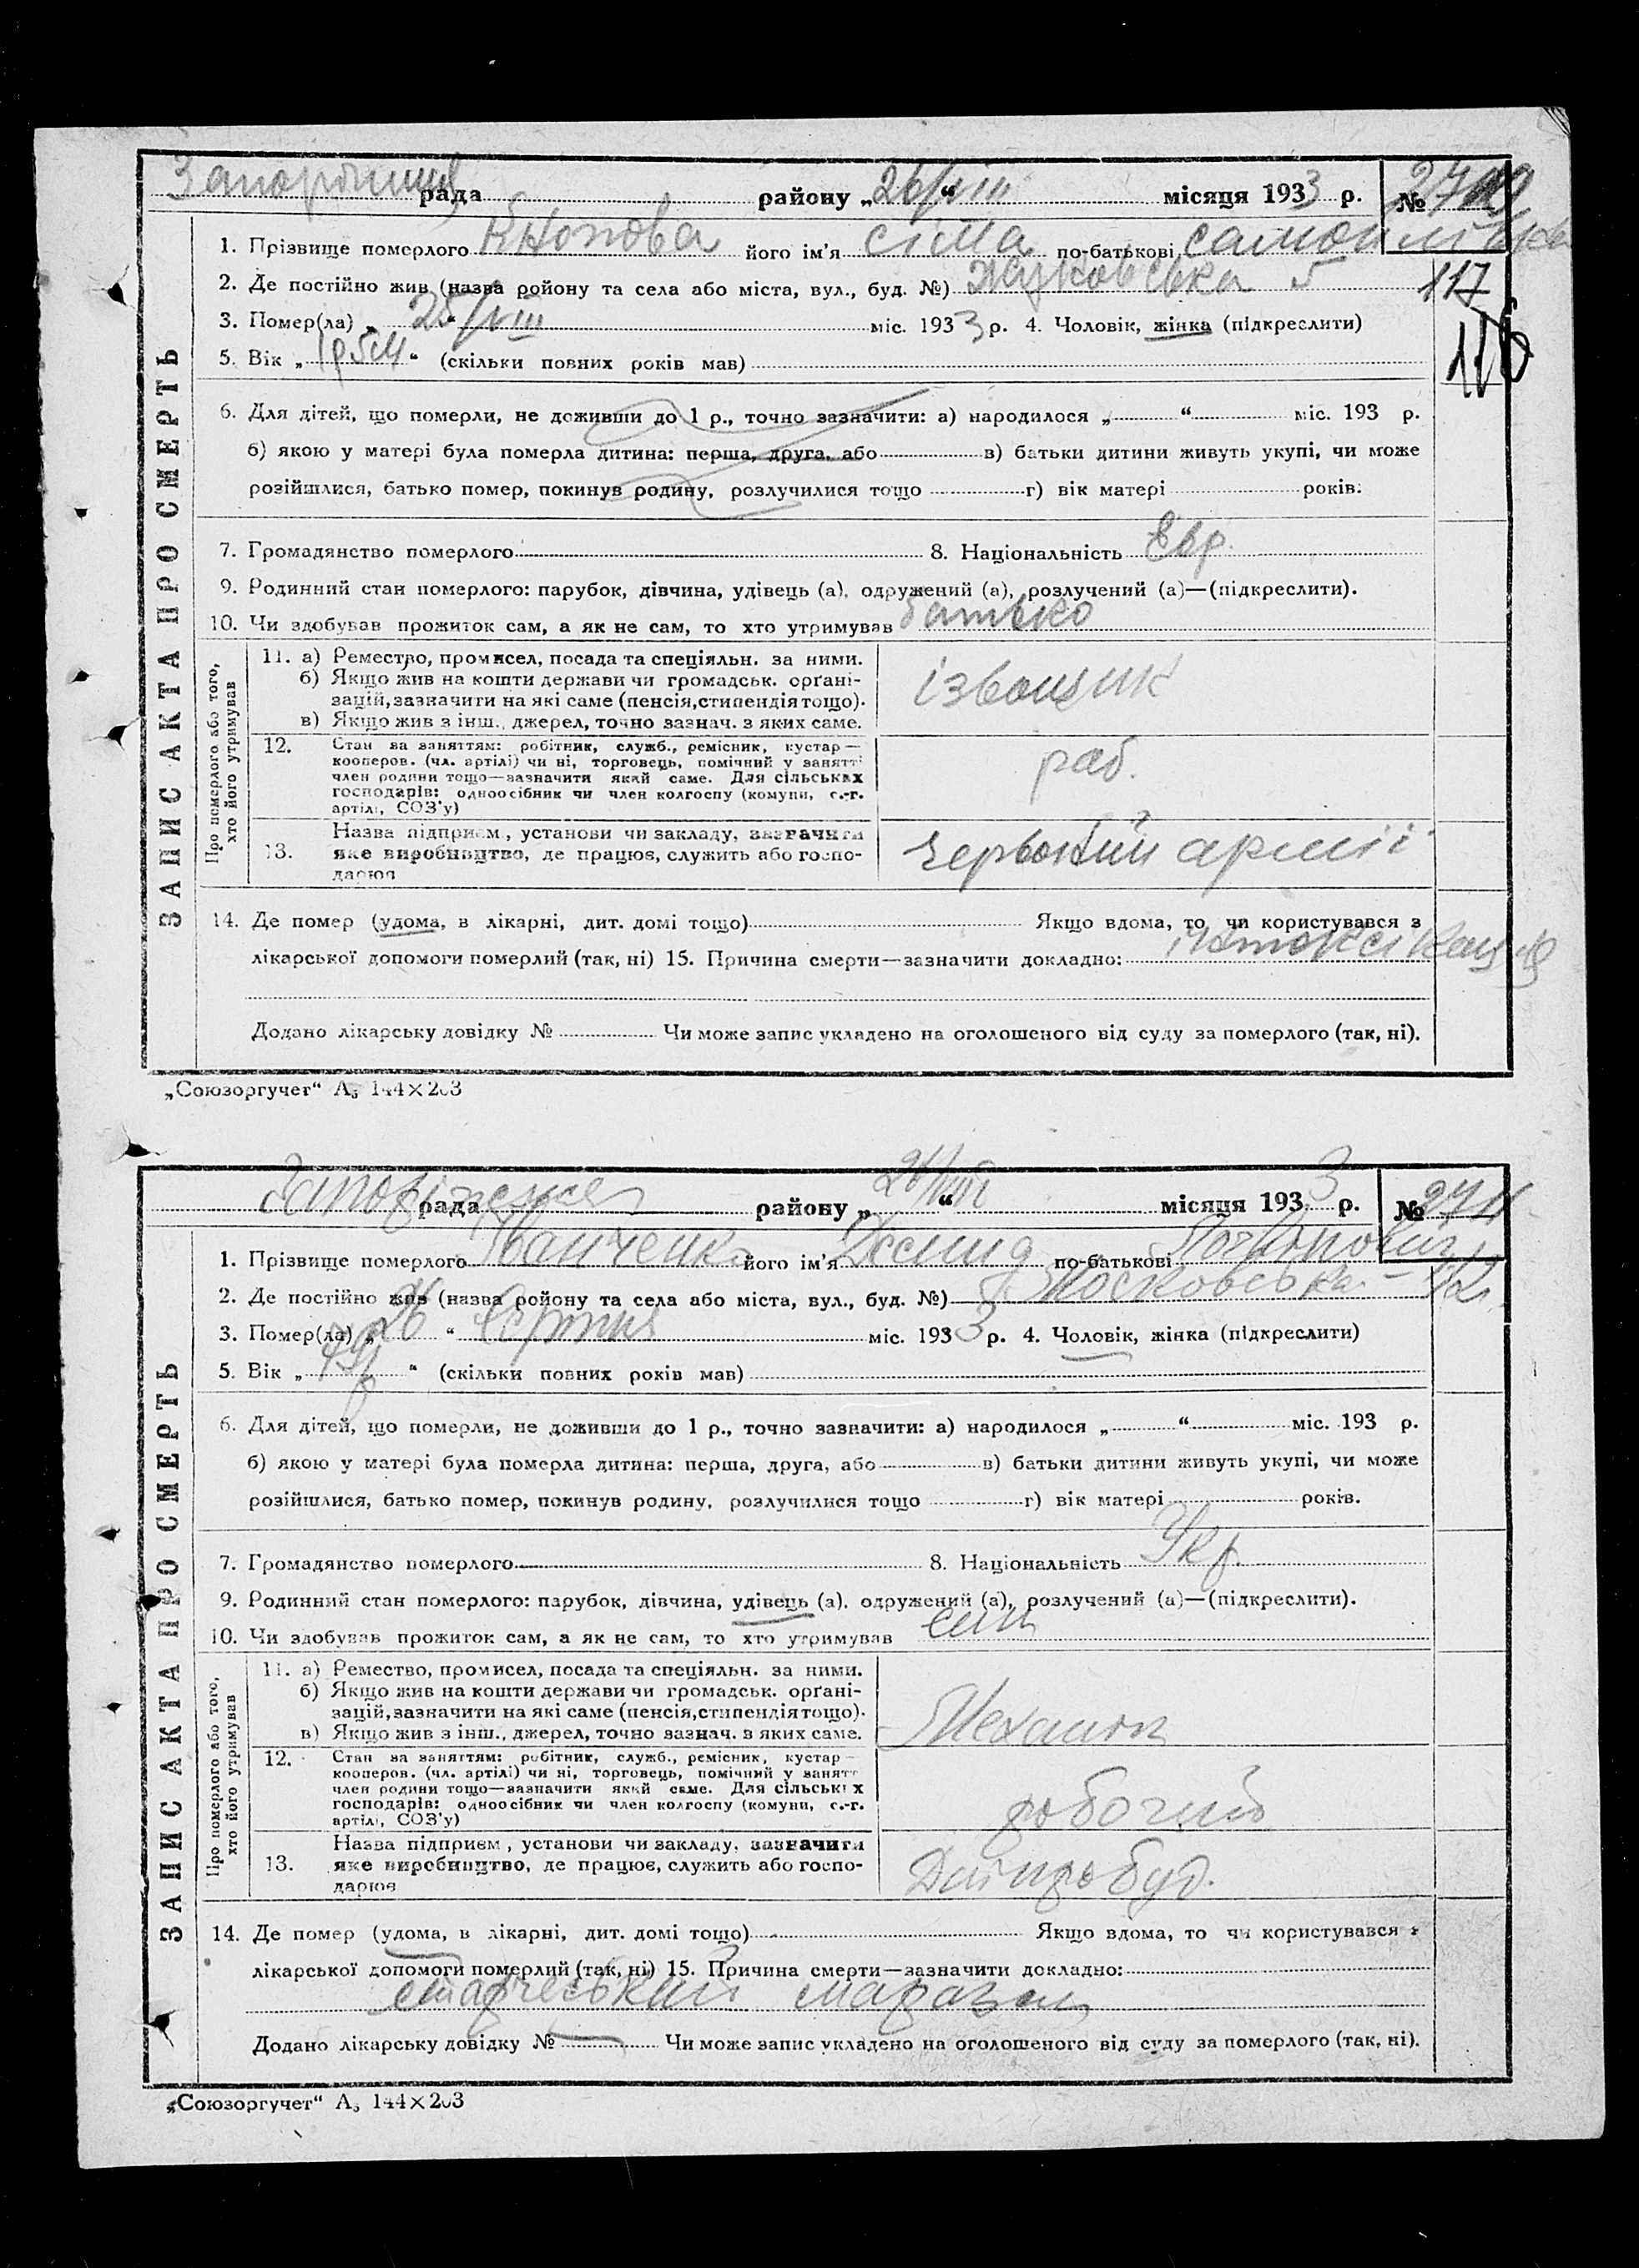 рада району „26/VIII“ місяця 1933 р. №
1. Прізвище померлого його ім'я Сіма по-батькові
2. Де постійно жив (назва ройону та села або міста, вул., буд. №) Жуковська 5
117
3. Помер(ла) „25/VIII“ міс. 1933 р. 4. Чоловік, жінка (підкреслити)
5. Вік „1р 5м“ (скільки повних років мав)
116
6. Для дітей, що померли, не доживши до 1 р., точно зазначити: а) народилося „ “ міс. 193 р.
б) якою у матері була померла дитина: перша, друга, або в) батьки дитини живуть укупі, чи може
розійшлися, батько помер, покинув родину, розлучилися тощо г) вік матері років.
7. Громадянство померлого 8. Національність Євр.
9. Родинний стан померлого: парубок, дівчина, удівець (а), одружений (а), розлучений (а)—(підкреслити).
10. Чи здобував прожиток сам, а як не сам, то хто утримував батько
11. а) Ремество, промисел, посада та спеціяльн. за ними.
б) Якщо жив на кошти держави чи громадськ. орґані-
зацій, зазначити на які саме (пенсія, стипендія тощо).
в) Якщо жив з інш., джерел, точно зазнач. з яких саме.
ізвощик
12. Стан за заняттям: робітник, служб., ремісник, кустар—
кооперов. (чл. артілі) чи ні, торговець, помічний у занятті
член родини тощо—зазначити який саме. Для сільських
господарів: одноосібник чи член колгоспу (комуни, с.-г.
артілі, СОЗ'у)
раб.
13. Назва підприєм., установи чи закладу, зазначити
яке виробництво, де працює, служить або госпо-
дарює
Червоний армії
14. Де помер (удома, в лікарні, дит. домі тощо) Якщо вдома, то чи користувався з
лікарської допомоги померлий (так, ні) 15. Причина смерти—зазначити докладно:
Додано лікарську довідку № Чи може запис укладено на оголошеного від суду за померлого (так, ні).
ЗАПИС АКТА ПРО СМЕРТЬ
Про померлого або того,
хто його утримував
„Союзоргучет“ А₅ 144×203
рада району „26/VIII“ місяця 1933 р. №
1. Прізвище померлого Іванченко його ім'я по-батькові
2. Де постійно жив (назва ройону та села або міста, вул., буд. №) Московська-
3. Помер(ла) „26“ Серпня міс. 1933 р. 4. Чоловік, жінка (підкреслити)
5. Вік „ “ (скільки повних років мав)
6. Для дітей, що померли, не доживши до 1 р., точно зазначити: а) народилося „ “ міс. 193 р.
б) якою у матері була померла дитина: перша, друга, або в) батьки дитини живуть укупі, чи може
розійшлися, батько помер, покинув родину, розлучилися тощо г) вік матері років.
7. Громадянство померлого 8. Національність Укр.
9. Родинний стан померлого: парубок, дівчина, удівець (а), одружений (а), розлучений (а)—(підкреслити).
10. Чи здобував прожиток сам, а як не сам, то хто утримував син
11. а) Ремество, промисел, посада та спеціяльн. за ними.
б) Якщо жив на кошти держави чи громадськ. орґані-
зацій, зазначити на які саме (пенсія, стипендія тощо).
в) Якщо жив з інш., джерел, точно зазнач. з яких саме.
Механік
12. Стан за заняттям: робітник, служб., ремісник, кустар—
кооперов. (чл. артілі) чи ні, торговець, помічний у занятті
член родини тощо—зазначити який саме. Для сільських
господарів: одноосібник чи член колгоспу (комуни, с.-г.
артілі, СОЗ'у)
робочий
13. Назва підприєм., установи чи закладу, зазначити
яке виробництво, де працює, служить або госпо-
дарює
Дніпробуд.
14. Де помер (удома, в лікарні, дит. домі тощо) Якщо вдома, то чи користувався з
лікарської допомоги померлий (так, ні) 15. Причина смерти—зазначити докладно:
старческий маразм
Додано лікарську довідку № Чи може запис укладено на оголошеного від суду за померлого (так, ні).
ЗАПИС АКТА ПРО СМЕРТЬ
Про померлого або того,
хто його утримував
„Союзоргучет“ А₅ 144×203